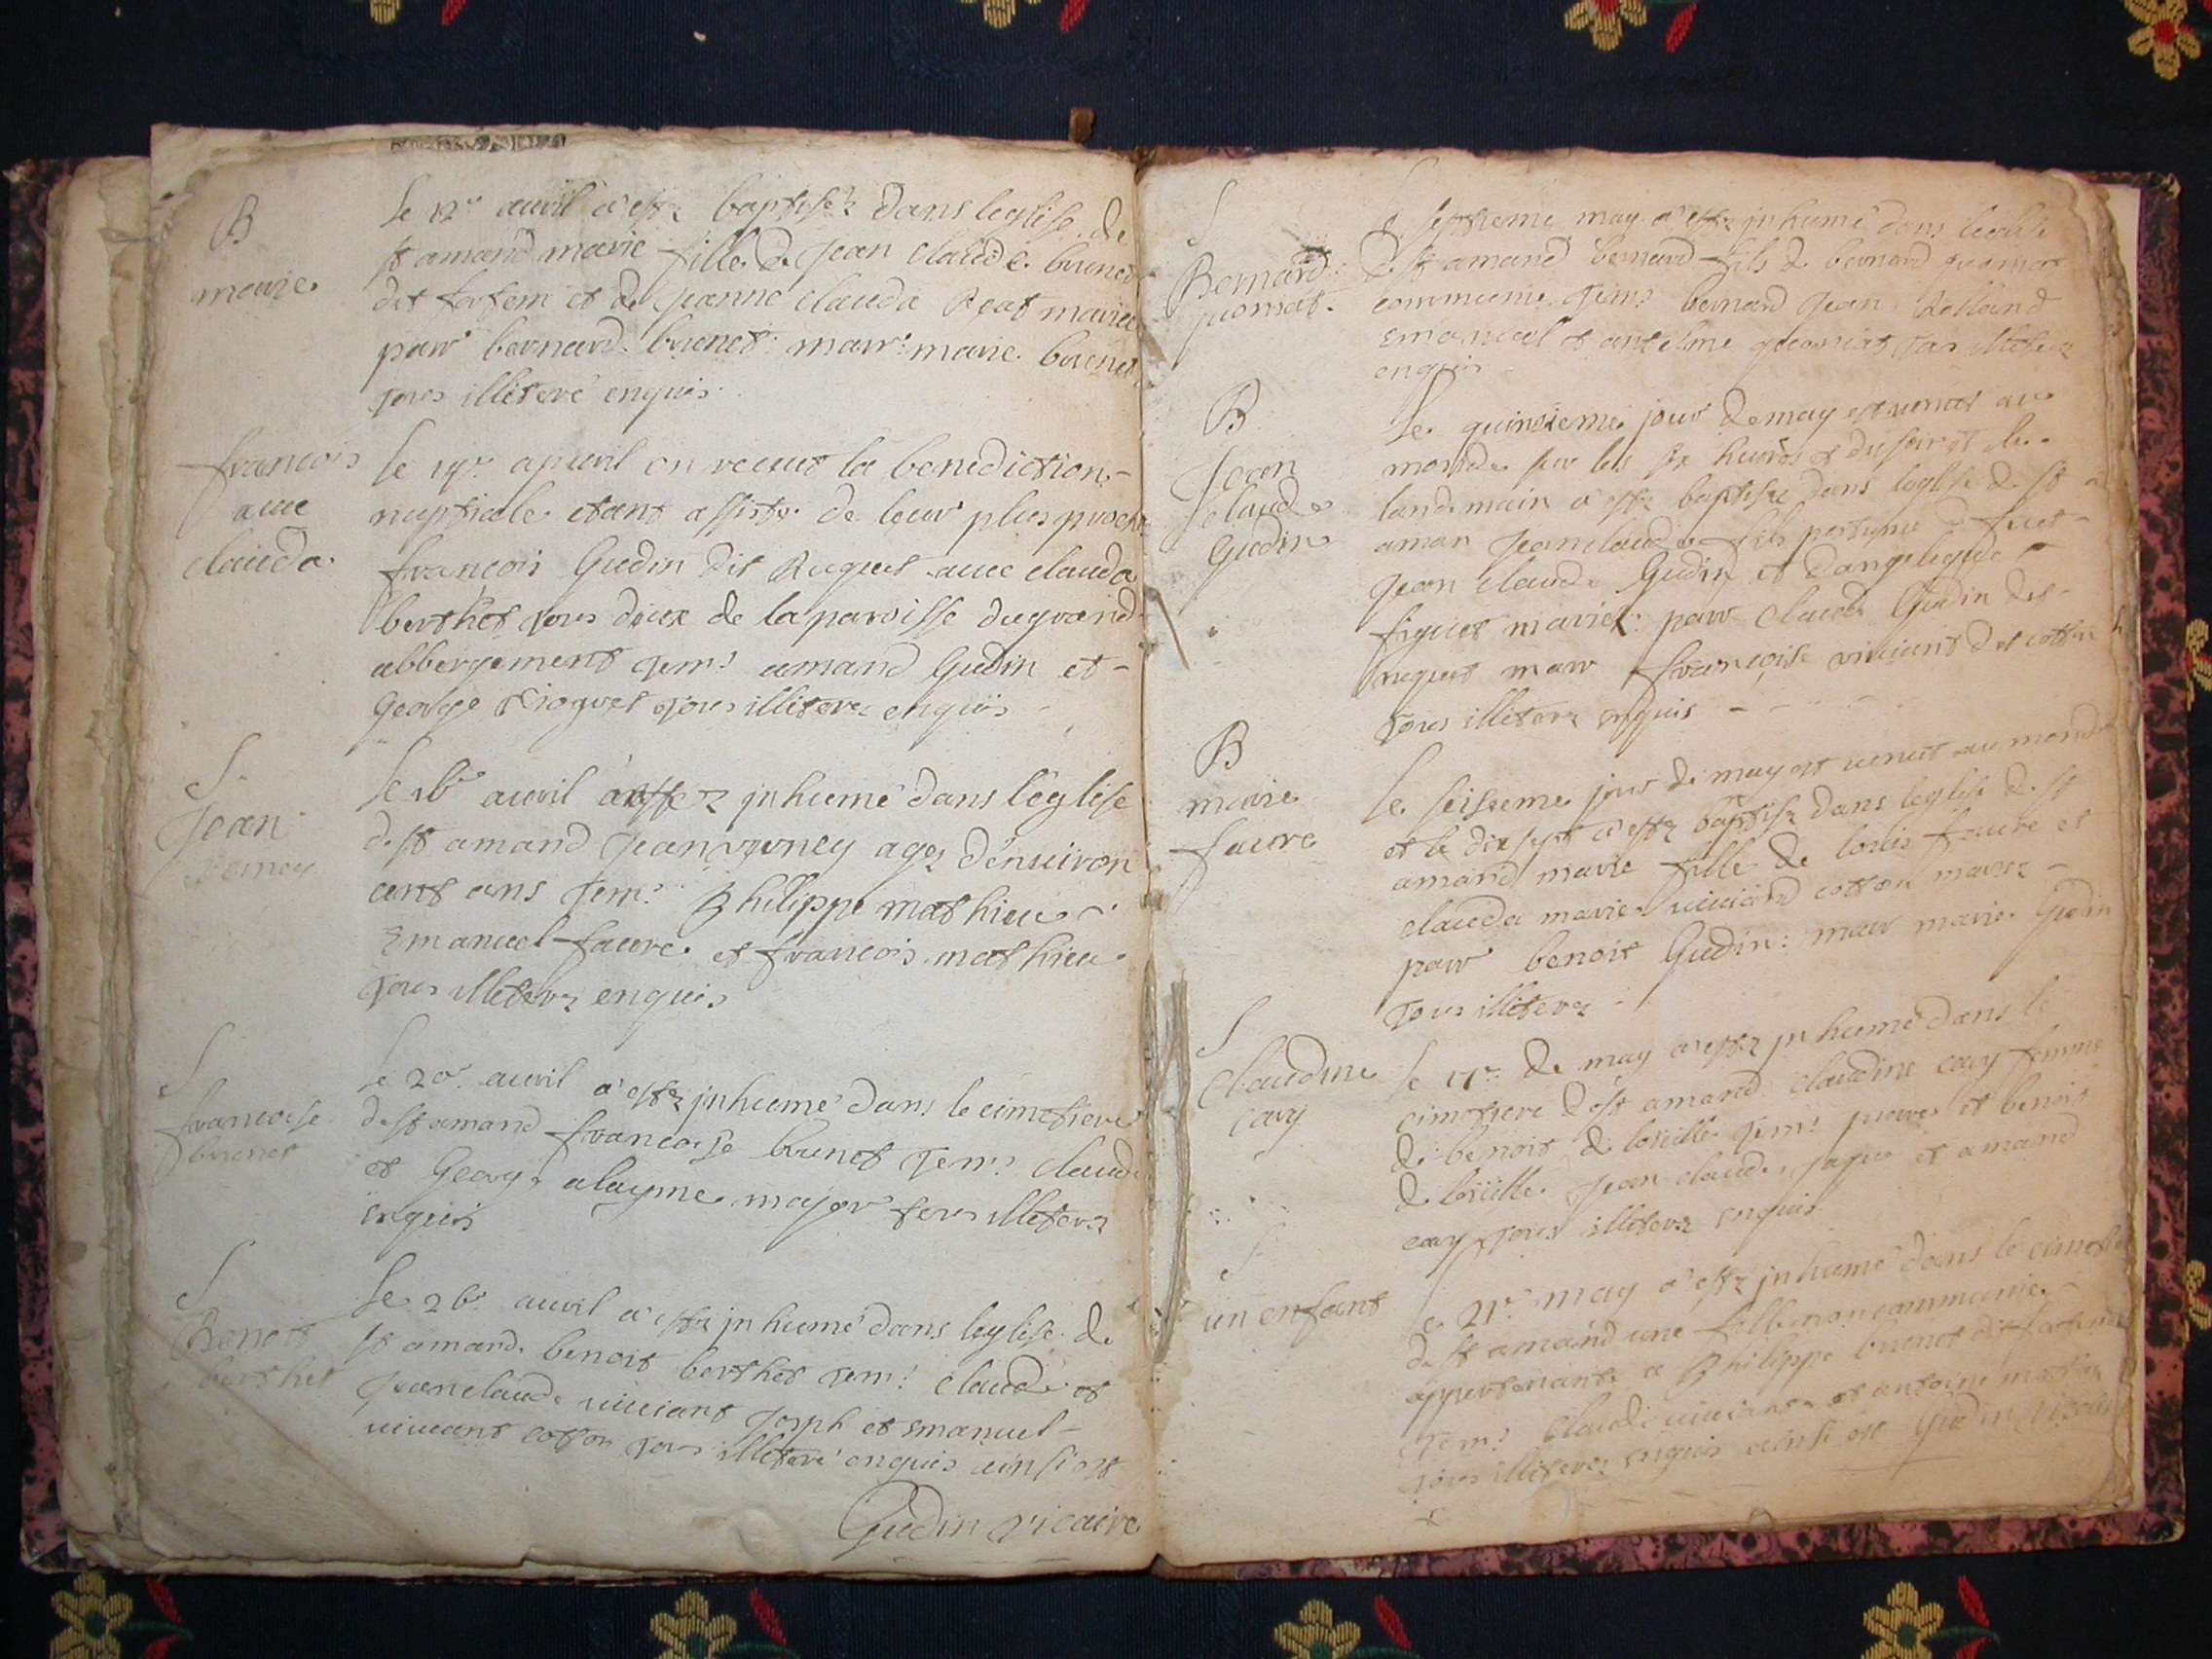 B
marie
Le 12e auril a estez baptisez dans leglise de
st amand marie fille de Jean claude brunet
dit et de Jeanne clauda mariez
par bernard brunet mar: marie brunet
tous illiteré enquis
francois
auec
clauda
le apuril on receut la benediction
nuptiale etant assiste de leur plus proche
francois Gudin dit Ruquet auec clauda
berthet tous deux de la paroisse dugrand
abbergement tem: amand Gudin et
George tous illiterez enquis
S
Jean
auril a estez jnhumé dans l'eglise
de st amand Jean agez denuiron
cent ans tem: Philippe mathieu
Emanuel faure et francois mathieu
tous illiterez enquis
S
francoise
brunet
le 20e auril a estez jnhumé dans le cimetiere
de st amand francoise brunet tem: claude
et George alayme major tous illiterez
enquis
S
Benoit
berthet
Le 26e auril a estez jnhumé dans leglise de
st amand benoit berthet tem: claude et
Jeanclaude uiuiant Joseph et emanuel
uiuiant cotton tous illiteré enquis ainsi est
Gudin vicaire
S
Bernard
septieme may a estez jnhumé dans leglise
de st amand bernard fils de bernard
communie tem: bernard Jean
emanuel et antelme tous illiterez
enquis
B
Jean
claude
Gudin
Le quinsieme jour de may est uenut au
monde sur les six heures du soir et le
landemain a estez baptisez dans leglise de st
aman Jeanclaude fils postume de
Jean claude Gudin et dangelique
mariez par claude Gudin dit
ruquet mar francoise uiuiant dit cotton
tous illiterez enquis
B
marie
faure
Le seisieme jour de may est uenut au monde
et le dix sept a estez baptisez dans leglise de st
amand marie fille de louis faure et
clauda marie uiuiand cotton mariez
par benoit Gudin: mar marie Gudin
tous illiterez
S
Claudine
cavy
le 17e de may a estez jnhumé dans le
cimetiere de st amand claudine cavy femme
de benoit de tem: et benoit
de Jean claude jaque et amand
cavy tous illiterez enquis
S
un enfant
le 21e may a estez jnhumé dans le cimetiere
de st amand une fille non communie
appertenante a Philippe brunet dit
tem: claude uiuiant et antoine
tous illiterez enquis ainsi est Gudin vicaire